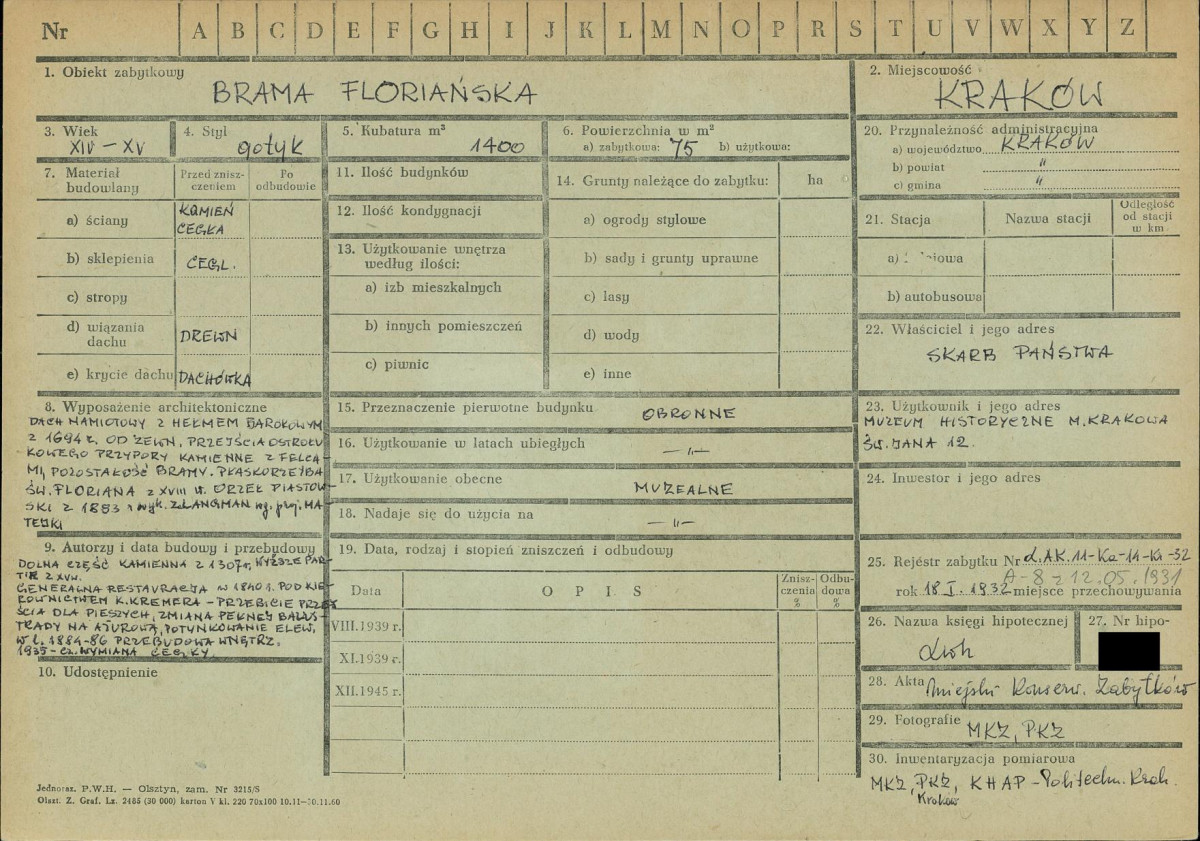 Nr A B C D E F G H I J K L M N O P R S T U V W X Y Z
1. Obiekt zabytkowy
BRAMA FLORIAŃSKA
2. Miejscowość
KRAKÓW
3. Wiek
XIV – XV
4. Styl
gotyk
5. Kubatura m³
1400
6. Powierzchnia w m²
a) zabytkowa: 75 b) użytkowa:
20. Przynależność administracyjna
a) województwo KRAKÓW
b) powiat "
c) gmina "
7. Materiał budowlany
Przed zniszczeniem
Po odbudowie
a) ściany KAMIEŃ CEGŁA
b) sklepienia CEGŁ.
c) stropy
d) wiązania dachu DREWN
e) krycie dachu DACHÓWKA
11. Ilość budynków
12. Ilość kondygnacji
13. Użytkowanie wnętrza
według ilości:
a) izb mieszkalnych
b) innych pomieszczeń
c) piwnic
14. Grunty należące do zabytku: ha
a) ogrody stylowe
b) sady i grunty uprawne
c) lasy
d) wody
e) inne
21. Stacja Nazwa stacji Odległość od stacji w km
a)
b) autobusowa
22. Właściciel i jego adres
SKARB PAŃSTWA
8. Wyposażenie architektoniczne
DACH NAMIOTOWY Z HEŁMEM BAROKOWYM
Z 1694 r. OD ZEWN. PRZEJŚCIA OSTROŁU
KOWEGO PRZYPORY KAMIENNE Z FELCA-
MI, POZOSTAŁOŚĆ BRAMY. PŁASKORZEŹBA
ŚW. FLORIANA z XVIII w. ORZEŁ PIASTOW-
SKI Z 1883 r wyk. Z. LANGMAN wg. proj. MA-
TEJKI
9. Autorzy i data budowy i przebudowy
DOLNA CZĘŚĆ KAMIENNA Z 1307r, WYŻSZE PAR-
TIE Z XVw.
GENERALNA RESTAURACJA w 1840 r. POD KIE-
ROWNICTWEM K. KREMERA – PRZEBICIE PRZEJ
ŚCIA DLA PIESZYCH, ZMIANA PEŁNEJ BALUS-
TRADY NA AŻUROWĄ, POTYNKOWANIE ELEW.
W l. 1884-86 PRZEBUDOWA WNĘTRZ.
1935 – cz. WYMIANA CEGŁY.
10. Udostępnienie
15. Przeznaczenie pierwotne budynku OBRONNE
16. Użytkowanie w latach ubiegłych —"—
17. Użytkowanie obecne MUZEALNE
18. Nadaje się do użycia na —"—
19. Data, rodzaj i stopień zniszczeń i odbudowy
Data OPIS Zniszczenia % Odbudowa %
VIII.1939 r.
XI.1939 r.
XII.1945 r.
23. Użytkownik i jego adres
MUZEUM HISTORYCZNE M. KRAKOWA
ŚW. JANA 12.
24. Inwestor i jego adres
25. Rejestr zabytku Nr L.AK.11-Ka-14-Kr-32
A-8 z 12.05.1931
rok 18 I. 1932 miejsce przechowywania
26. Nazwa księgi hipotecznej
Lwh
27. Nr hipo-
28. Akta Miejski Konserw. Zabytków
29. Fotografie MKZ, PKZ
30. Inwentaryzacja pomiarowa
MKZ, PKZ, KHAP – Politechn. Krak.
Kraków
Jednoraz. P.W.H. — Olsztyn, zam. Nr 3215/S
Olszt. Z. Graf. Lz. 2485 (30 000) karton V kl. 220 70x100 10.11–30.11.60